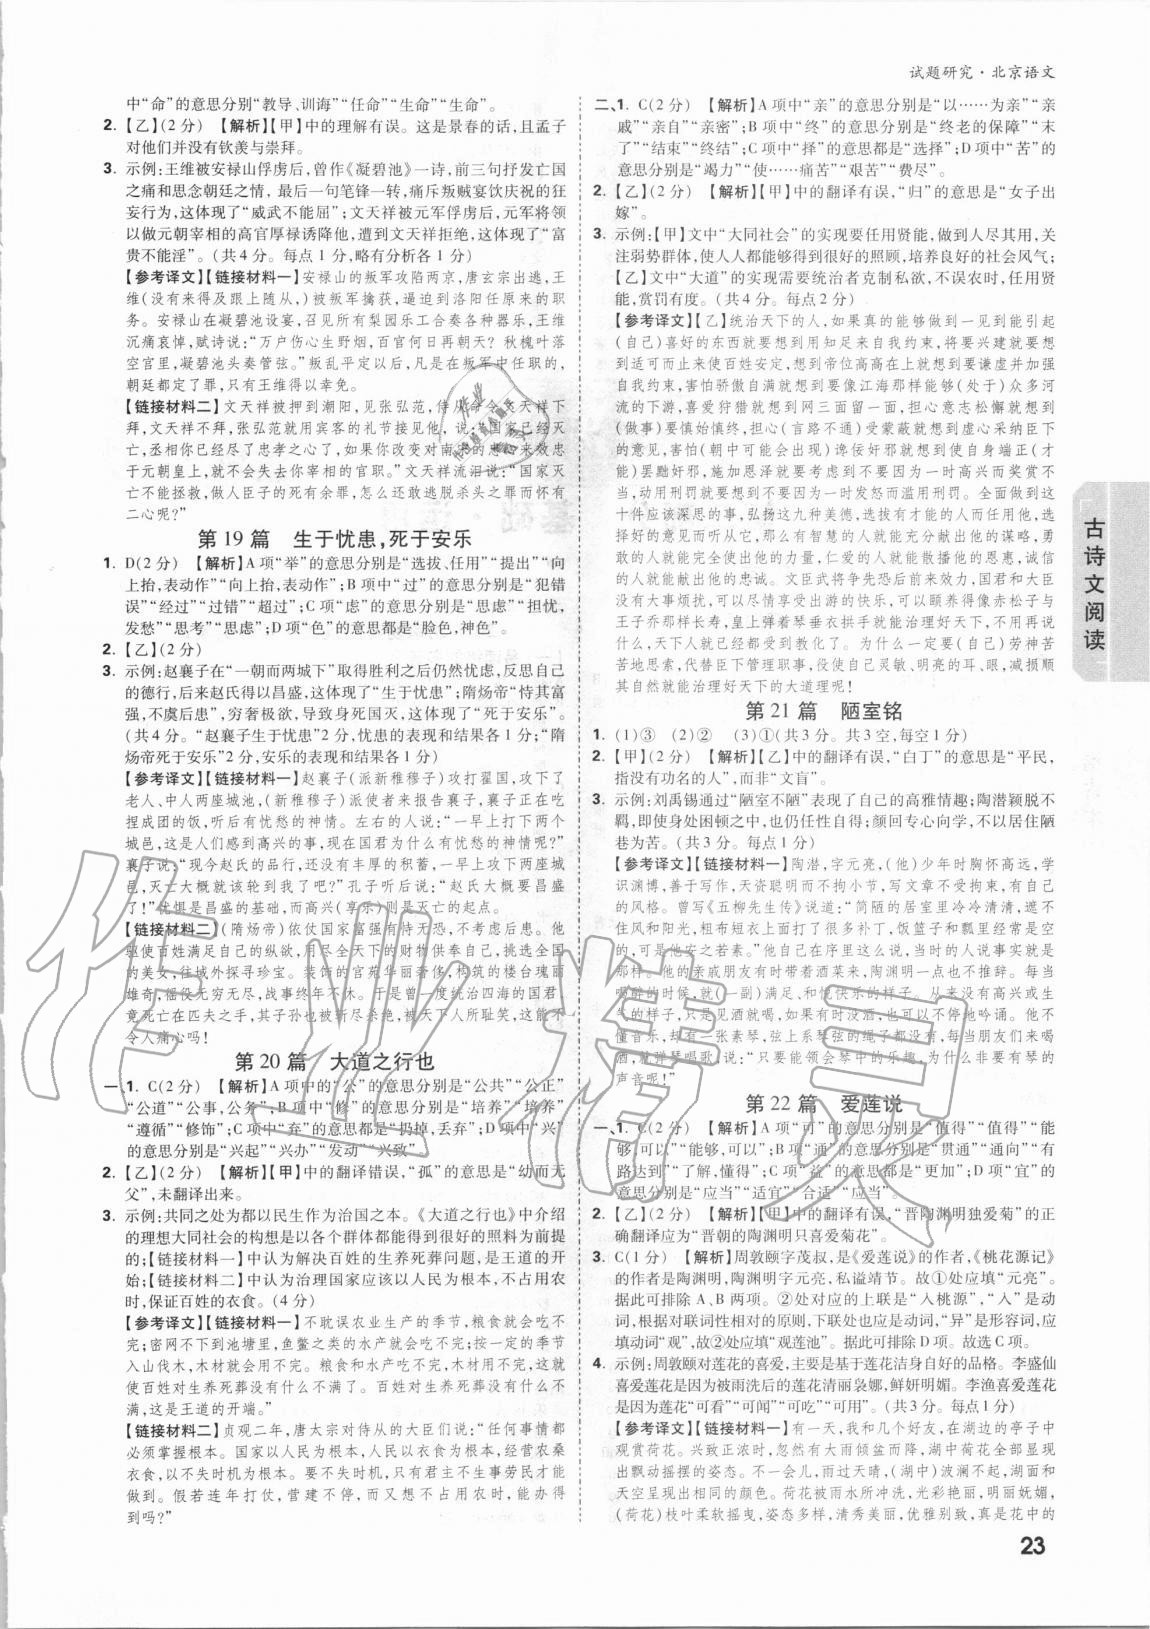 试题研究·北京语文
中“命”的意思分别“教导、训诲”“任命”“生命”“生命”。
2. 【乙】(2分) 【解析】【甲】中的理解有误。这是景春的话,且孟子
对他们并没有钦羡与崇拜。
3. 示例:王维被安禄山俘虏后,曾作《凝碧池》一诗,前三句抒发亡国
之痛和思念朝廷之情，最后一句笔锋一转,痛斥叛贼宴饮庆祝的狂
妄行为,这体现了“威武不能屈”;文天祥被元军俘虏后,元军将领
以做元朝宰相的高官厚禄诱降他,遭到文天祥拒绝,这体现了“富
贵不能淫”。(共4分。每点1分,略有分析各1分)
【参考译文】【链接材料一】安禄山的叛军攻陷两京,唐玄宗出逃,王
维(没有来得及跟上随从,)被叛军擒获,逼迫到洛阳任原来的职
务。安禄山在凝碧池设宴,召见所有梨园乐工合奏各种音乐,王维
沉痛哀悼,赋诗说:“万户伤心生野烟,百官何日再朝天?秋槐叶落
空宫里,凝碧池头奏管弦。”叛乱平定以后,凡是在叛军中任职的,
朝廷都定了罪,只有王维得以幸免。
【链接材料二】文天祥被押到潮阳,见张弘范,侍从命令文天祥下
拜,文天祥不拜,张弘范就用宾客的礼节接见他,说:“国家已经灭
亡,丞相已经尽了忠孝之心了,如果你改变对南宋的忠心来效忠
于元朝皇上,就不会失去你宰相的官职。”文天祥流泪说:“国家灭
亡不能拯救,做人臣子的死有余罪,怎么还敢脱杀头之罪而怀有
二心呢?”
第19篇 生于忧患,死于安乐
1. D(2分) 【解析】A项“举”的意思是“选拔、任用”“提出”“向
上抬,表动作”“向上抬,表动作”;B项中“过”的意思分别是“犯错
误”“经过”“过错”“超过”;C项“虑”的意思分别是“思虑”“担忧,
发愁”“思考”“思虑”;D项“色”的意思都是“脸色,神色”。
2. 【乙】(2分)
3. 示例:赵襄子在“一朝而两城下”取得胜利之后仍然忧虑,反思自己
的德行,后来赵氏得以昌盛,这体现了“生于忧患”;隋炀帝“恃其富
强,不虞后患”,穷奢极欲,导致身死国灭,这体现了“死于安乐”。
(共4分。“赵襄子生于忧患”2分,忧患的表现和结果1分;“隋
炀帝死于安乐”2分,安乐的表现和结果各1分)
【参考译文】【链接材料一】赵襄子(派新稚穆子)攻打翟国,攻下了
老人、中人两座城池,(新稚穆子)派使者来报告襄子,襄子正在吃
捏成团的饭,听后有忧愁的神情。左右的人说:“一早上打下两个
城邑,这是人们高兴的事,现在国君为什么有忧愁的神情呢?”
襄子说:“现今赵氏的品行,还没有丰厚的积蓄,一早上攻下两座城
邑,灭亡大概就该轮到我了吧?”孔子听后说:“赵氏大概要昌盛
了!”忧惧是昌盛的基础,而高兴(享乐)则是灭亡的起点。
【链接材料二】(隋炀帝)依仗国家富强有恃无恐,不考虑后患。他
驱使百姓满足自己的纵欲,用尽全天下的财物供奉自己,挑选全国
的美女,往域外探寻珍宝。装饰的宫苑华丽奢侈,构筑的楼台瑰丽
雄奇,徭役无穷无尽,战事终年不休。于是曾一度统治四海的国君,
竟死亡在匹夫之手,其子孙也被斩尽杀绝,被天下人所耻笑,这能不
令人痛心吗!
第20篇 大道之行也
一、1. C(2分) 【解析】A项中的“公”的意思分别是“公共”“公正”
“公道”“公事,公务”;B项中“修”的意思分别是“培养”“培养”
“遵循”“修饰”;C项中“弃”的意思都是“扔掉,丢弃”;D项中“兴”
的意思分别是“兴起”“兴办”“发动”“兴致”。
2. 【乙】(2分) 【解析】【甲】中的翻译错误,“孤”的意思是“幼而无
父”,未翻译出来。
3. 示例:共同之处为都以民生作为治国之本。《大道之行也》中介绍
的理想大同社会的构想是以各个群体都能得到很好的照料为前提
的;【链接材料一】中认为解决百姓的生养死葬问题,是王道的开端;
【链接材料二】中认为治理国家应该以人民为根本,不能因战争误农
时,保证百姓的衣食。(4分)
【参考译文】【链接材料一】不耽误农业生产的季节,粮食就会吃不
完;密网不下到池塘里,鱼鳖之类的水产就会吃不完;按一定的季节
入山伐木,木材就会用不完。粮食和水产吃不完,木材用不完,这就
使百姓对生养死葬没有什么不满了。百姓对生养死葬没有什么不
满,这是王道的开端。”
【链接材料二】贞观二年,唐太宗对侍从的大臣们说:“任何事情都
必须掌握根本。国家以人民为根本,人民以衣食为根本,经营农桑
衣食,以不失时机为根本。要不失时机,只有君主不生事劳民才能
做到。假若连年打仗,营建不停,而又想不占用农时,能办得
到吗?”
二、1. C(2分) 【解析】A项中“亲”的意思分别是“以……为亲”“亲
戚”“亲自”“亲密”;B项中“终”的意思分别是“终老的保障”“末
了”“结束”“终结”;C项中“择”的意思都是“选择”;D项中“苦”的
意思分别是“竭力”“使……痛苦”“艰苦”“费尽”。
2. 【乙】(2分) 【解析】【甲】中的翻译有误,“归”的意思是“女子出
嫁”。
3. 示例:【甲】文中“大同社会”的实现要任用贤能,做到人尽其用,关
注弱势群体,使人人都能够得到很好的照顾,培养良好的社会风气;
【乙】文中“大道”的实现需要统治者克制私欲,不误农时,任用贤
能,赏罚有度。(共4分。每点2分)
【参考译文】【乙】统治天下的人,如果真的能够做到一见到能引起
(自己)喜好的东西就要想到用知足来自我克制,将要兴建就要想到
适可而止来使百姓安定,想到帝位高高在上就要想到要谦虚并加强
自我约束,害怕骄傲自满就想到要像江海那样能够(处于)众多河
流的下游,喜爱狩猎就想到网三面留一面,担心意志松懈就想到
(做事)要慎始慎终,担心(言路不通)受蒙蔽就想到虚心采纳臣下
的意见,害怕(朝中可能会出现)谗佞奸邪就想到使自身端正(才
能)罢黜奸邪,施加恩泽就要考虑到不要因为一时高兴而奖赏不
当,动用刑罚就要想到不要因为一时发怒而滥用刑罚。全面做到这
十件应该深思的事,弘扬这九种美德,选拔有才能的人而任用他,挑
选好的意见而听从它,那么有智慧的人就能献出他的谋略,勇敢
的人就能完全使出他的力量,仁爱的人就能散播他的恩惠,诚信
的人就能献出他的忠诚。文臣武将争先恐后前来效力,国君和大臣
没有大事烦扰,可以尽情享受出游的快乐,可以颐养得像赤松子与
王子乔那样长寿,皇上弹着琴垂衣拱手就能治理好天下,不用再说
什么,天下人就已经都受到教化了。为什么一定要(自己)劳神苦
苦地思虑,代替臣下管理职事,役使自己灵敏、明亮的耳、眼,减损顺
其自然就能治理好天下的大道理呢!
第21篇 陋室铭
1. (1)③ (2)② (3)①(共3分,每空1分)
2. 【甲】(2分) 【解析】【乙】中的翻译有误,“白丁”的意思是“平民,
指没有功名的人”,而非“文盲”。
3. 示例:刘禹锡通过“陋室不陋”表现了自己的高雅情趣;陶潜颖脱不
羁,即使身处困顿之中,也仍任性自得;颜回专心向学,不以居住陋
巷为苦。(共3分。每点1分)
【参考译文】【链接材料一】陶潜,字元亮,(他)少年时胸怀高远,学
识渊博,善于写作,天资聪明而不拘小节,写文章不受拘束,有自己
的风格。曾写《五柳先生传》说道:“简陋的居室里冷冷清清,遮不
住风和阳光,粗布短衣上打了很多的补丁,饭篮子和瓢里经常是空
的,可是他安之若素。”他自己在序里这么说,当时的人说事实就是
那样。他的亲戚朋友有时带着酒菜来,陶渊明一点也不推辞。每当
喝醉的时候,就(一副)满足、和悦快乐的样子。从来没有高兴或生
气的样子,只是见到酒就喝,如果有时没有酒,也还不停地吟诵。他
不懂音乐,却有一张素琴,弦上系琴弦的绳子都没有,每当朋友们喝
酒,就弹琴唱歌,说:“只要能领会琴中的乐趣,为什么非要有琴的
声音呢!”
第22篇 爱莲说
一、1. C(2分) 【解析】A项“可”的意思分别是“值得”“值得”“能
够,可以”“能够,可以”;B项“通”的意思分别是“贯通”“通向”“有
路达到”“了解,懂得”;C项“益”的意思都是“更加”;D项“宜”的
意思分别是“应当”“适宜”“合适”“应当”。
2. 【乙】(2分) 【解析】【甲】中的翻译有误,“晋陶渊明独爱菊”的正
确翻译应为“晋朝的陶渊明只喜爱菊花”。
3. C(1分) 【解析】周敦颐字茂叔,是《爱莲说》的作者,《桃花源记》
的作者是陶渊明,陶渊明字元亮,私谥靖节。故①处应填“元亮”。
据此可排除A、B两项。②处对应的上联是“入桃源”,“入”是动
词,根据对联词性相对的原则,下联处也应是动词,“异”是形容词,应
填动词“观”,故②处应填“观莲池”。据此可排除D项。故选C项。
4. 示例:周敦颐对莲花的喜爱,主要是基于莲花洁身自好的品格。李盛仙
喜爱莲花是因为被雨洗后的莲花清丽袅娜,鲜妍明媚。李渔喜爱莲花
是因为莲花“可看”“可闻”“可吃”“可用”。(共3分。每点1分)
【参考译文】【链接材料一】有一天,我和几个好友,在湖边的亭子中
观赏荷花。兴致正浓时,忽然有大雨倾盆而降,湖中荷花全部显现
出飘动摇摆的姿态。不久,雨过天晴,(湖中)波澜不起,湖面和
天空呈现出相同的颜色。荷花被雨水所冲洗,光彩艳丽,明丽妩媚,
(荷花)枝叶柔软摇曳,姿态多样,清秀美丽,优雅别致,真是花中的
古诗文阅读
23
作业精灵